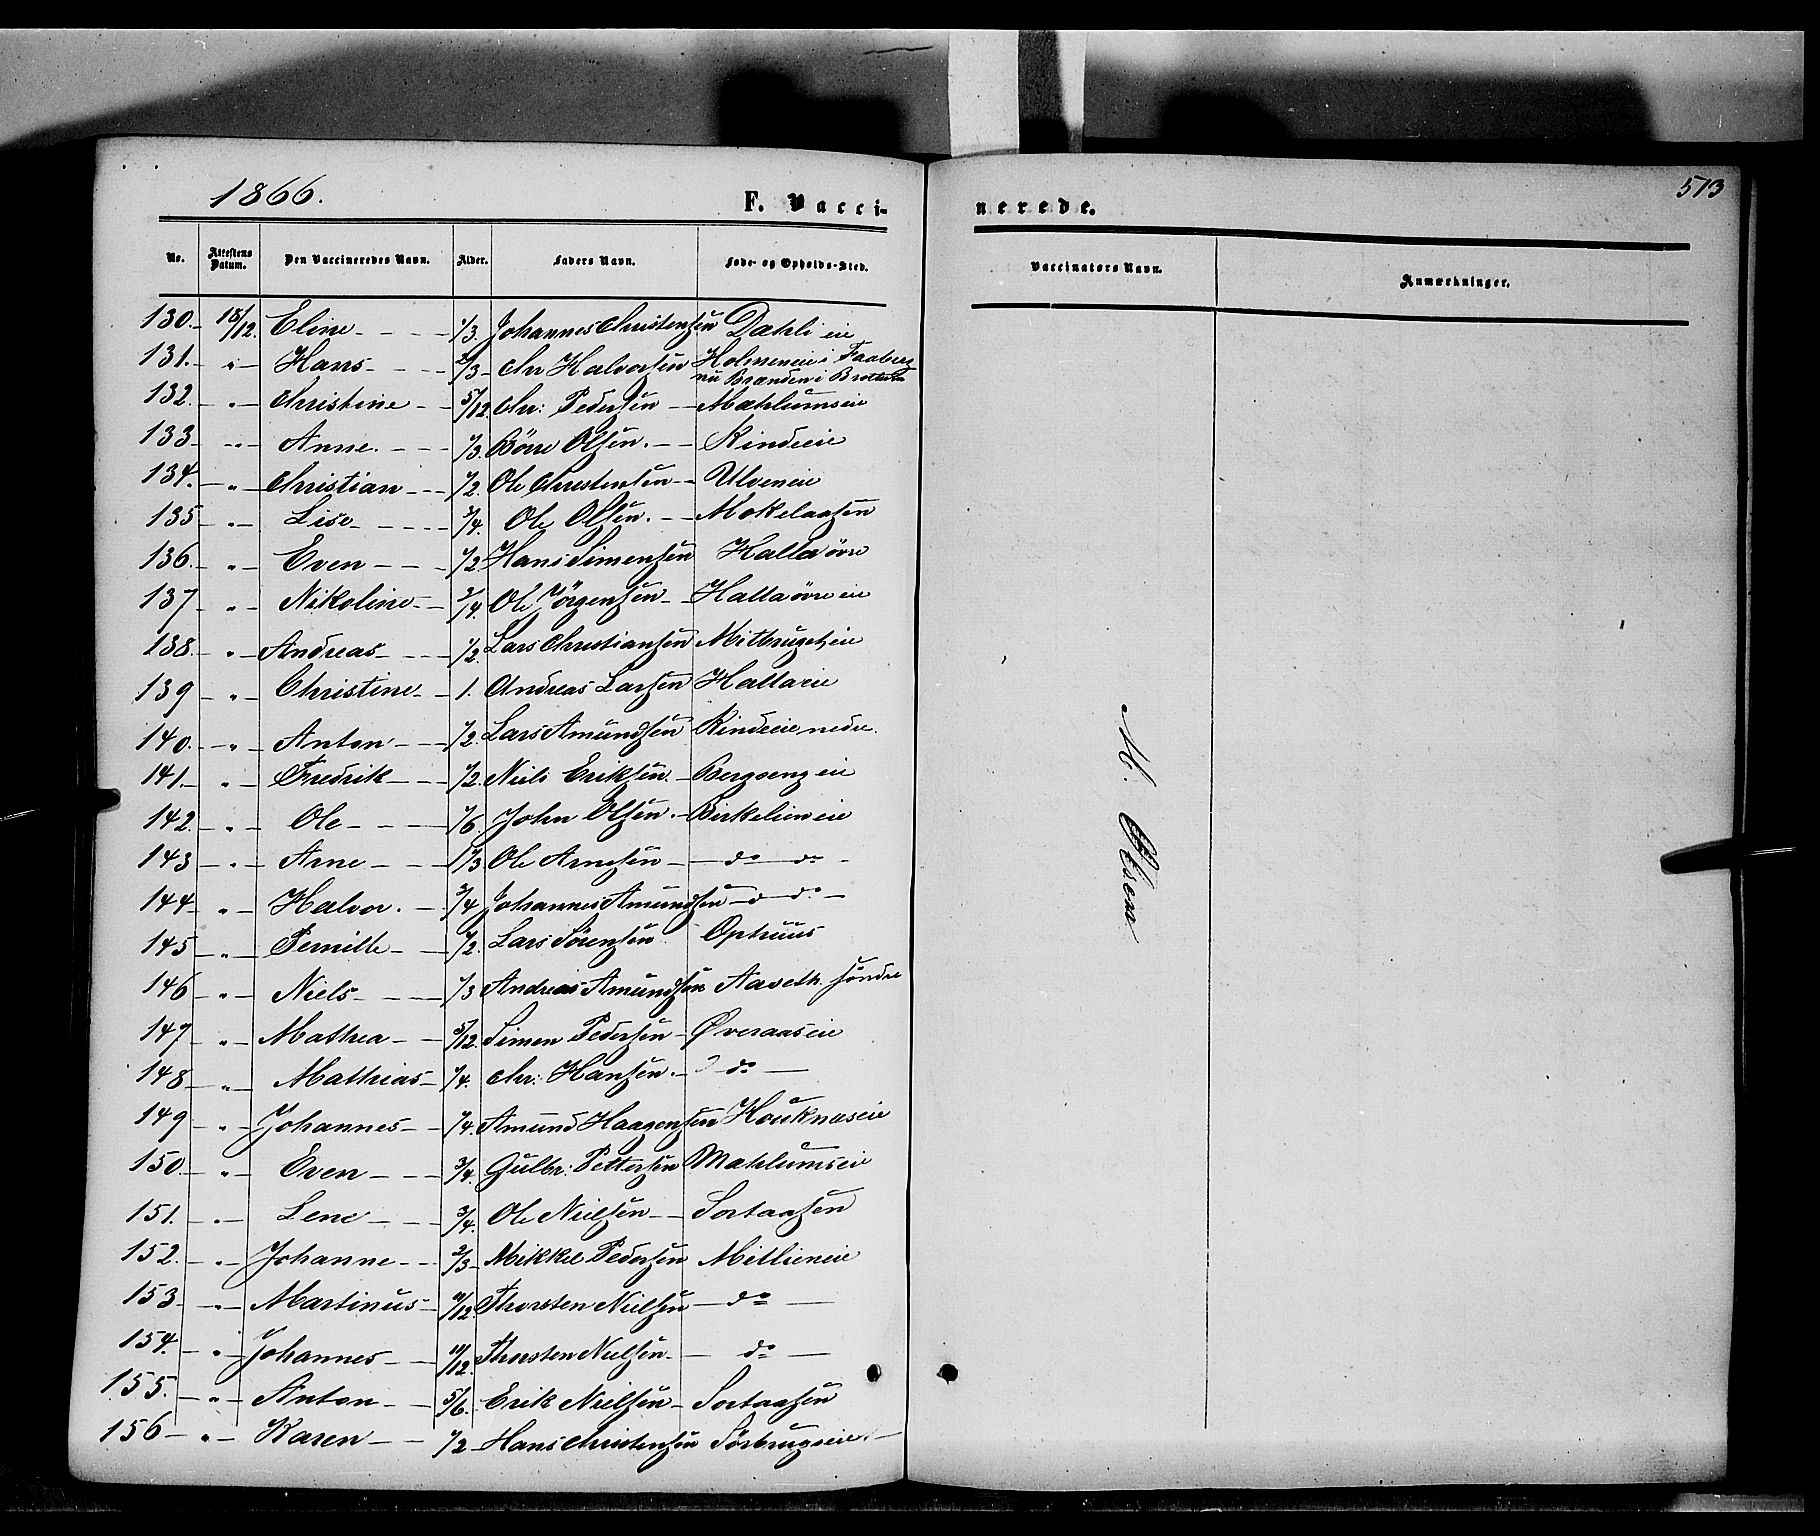 1866. F. Vacci- nerede. 513
No. Attestens Datum. Den Vaccineredes Navn. Alder. Faders Navn. Føde- og Opholds-Sted. Vaccinators Navn. Anmærkninger.
130. 18/12. Eline 1/3. Johannes Christensen Dæhli eie
131. " Hans 2/3 Chr Halvorsen Holmeneie i Faaberg
nu Brænden i Brøttum
132. " Christine 5/12. Chr: Pedersen Mæhlumseie
133 " Anne. 1/3. Börre Olsen. Rindeeie
134. " Christian 1/2. Ole Christensen Ulveneie
135 " Lise 3/4. Ole Olsen. Mokelaasen
136. " Even 1/2 Hans Simensen Halla övre
137 " Nikoline 3/4. Ole Jörgensen Halla övre eie
138. " Andreas 1/2. Lars Christiansen Mitbruget eie
139 " Christine 1. Andreas Larsen Hallaeie
140. " Anton 1/2. Lars Amundsen Rindeeie nedre.
141. " Fredrik 1/2. Niels Eriksen. Bergseng eie
142. " Ole 1/6. John Olsen. Birkelien eie
143 " Arne 1 1/3 Ole Arnesen do do
144 " Halvor. 3/4 Johannes Amundsen do do
145 " Pernille 1/2. Lars Sörensen Ophuus
146 " Niels 1/3 Andreas Amundsen Aaveth. söndre
147 " Mathea 5/12. Simen Pedersen Øveraaseie
148 " Mathias 1/4. Chr: Hansen. do
149 " Johannes 1/4. Amund Haagensen Houknaseie
150. " Even 3/4. Gulbr: Pettersen Mæhlumseie
151. " Lene 3/4. Ole Nielsen Sortaasen
152. " Johanne 2/3 Mikkel Pedersen Mitlieneie
153 " Martinus 11/12. Thorsten Nielsen do
154. " Johannes 11/12. Thorsten Nielsen do
155. " Anton 5/6. Erik Nielsen Sortaasen
156 " Karen 1/2 Hans Christensen Sörbrugseie
M. Olsen